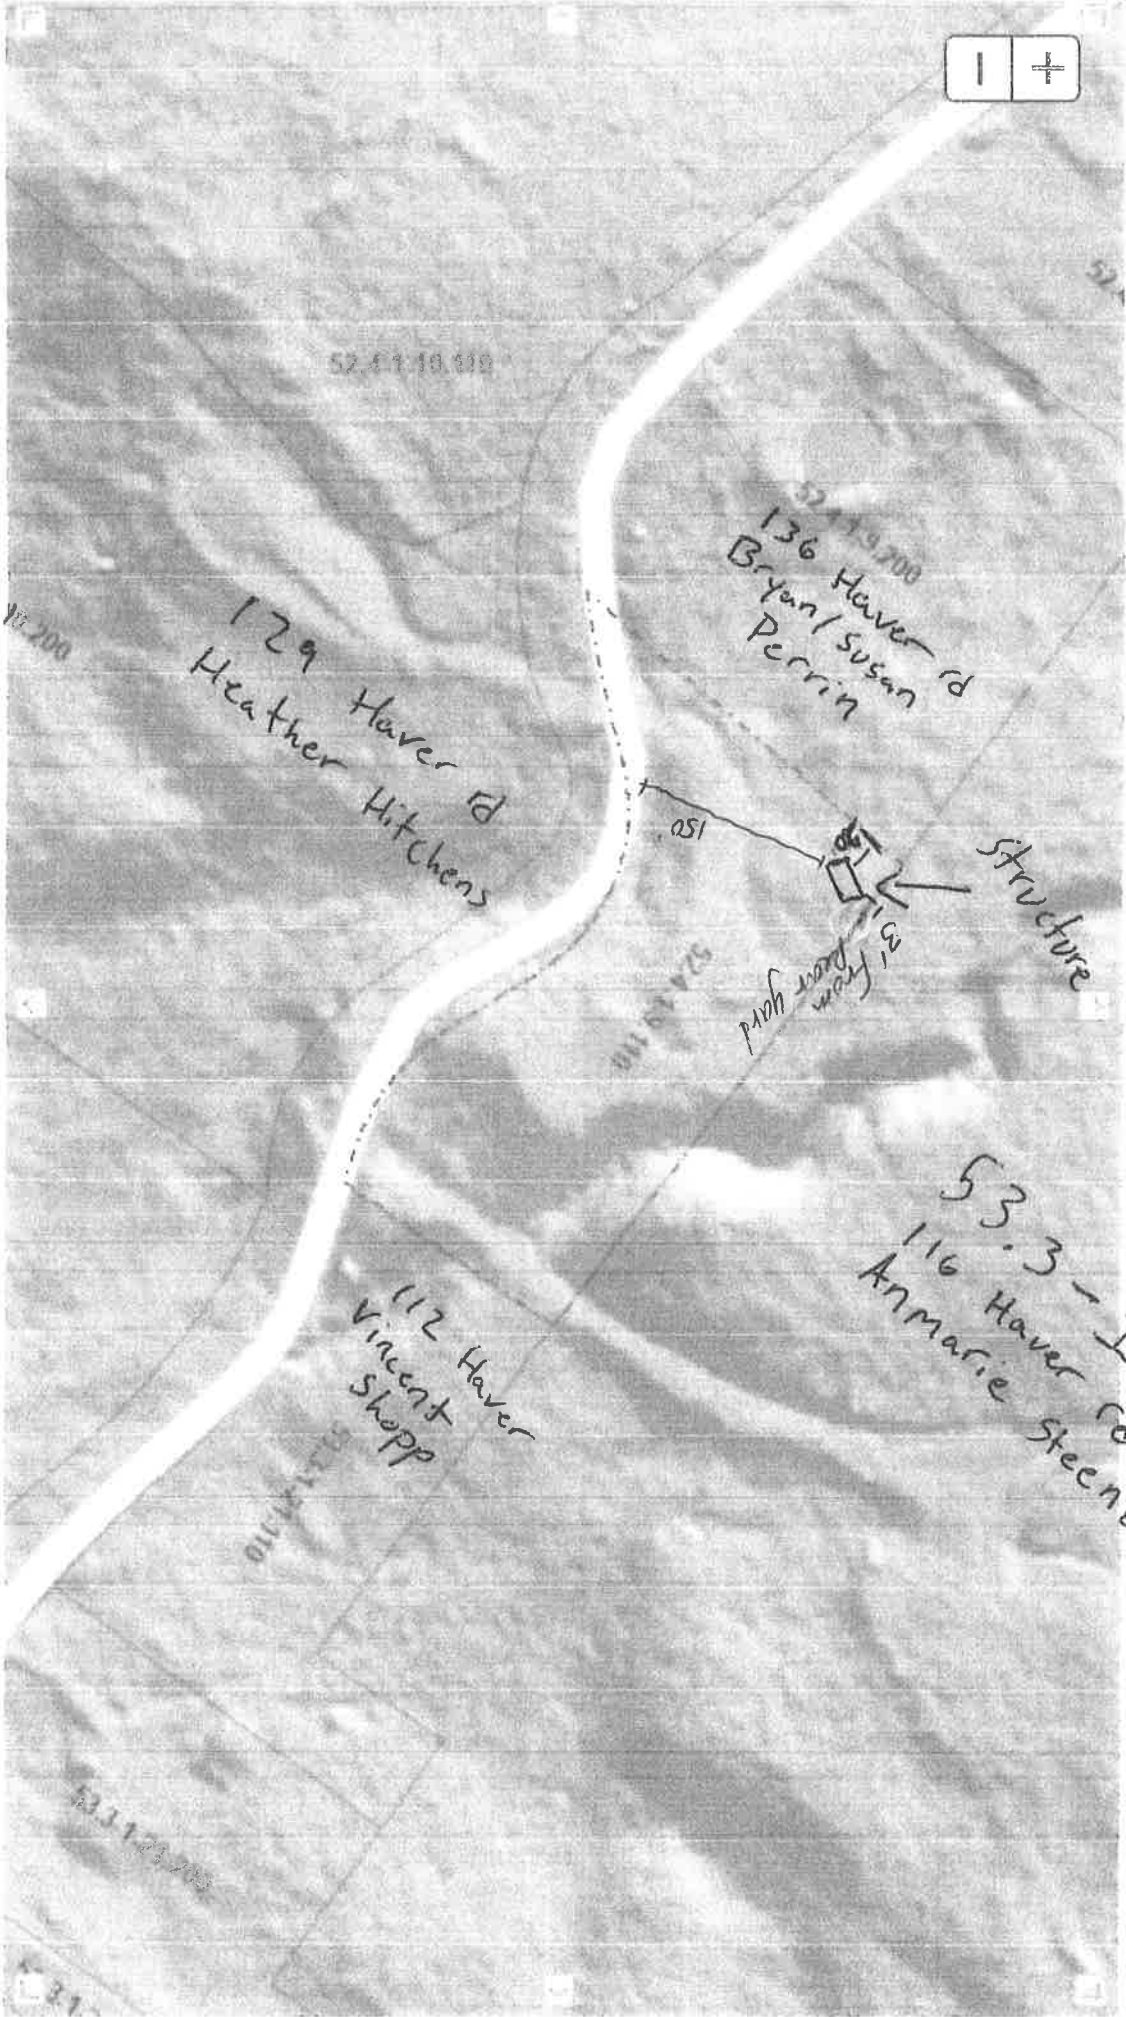 52.4.1.10.110
52.4.1.9.200
136 Haver rd
Bryan/Susan
Perrin
10.200
129 Haver rd
Heather Hitchens
150'
Structure
3' from
Rear yard
52.4.1.9.110
53.3-
116 Haver rd
Anmarie Steen
112 Haver
Vincent
Shopp
53.3.1.21.200